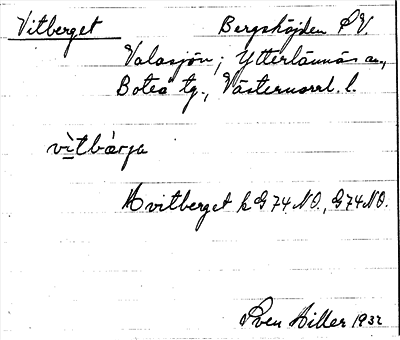 Vitberget Bergshöjden S.V.
Valasjön; Ytterlännäs sn.,
Boteå tg., Västernorrl. l.
vìtbàrja
Hvitberget k G 74 NO., G 74 NO.
Sven Hiller 1932